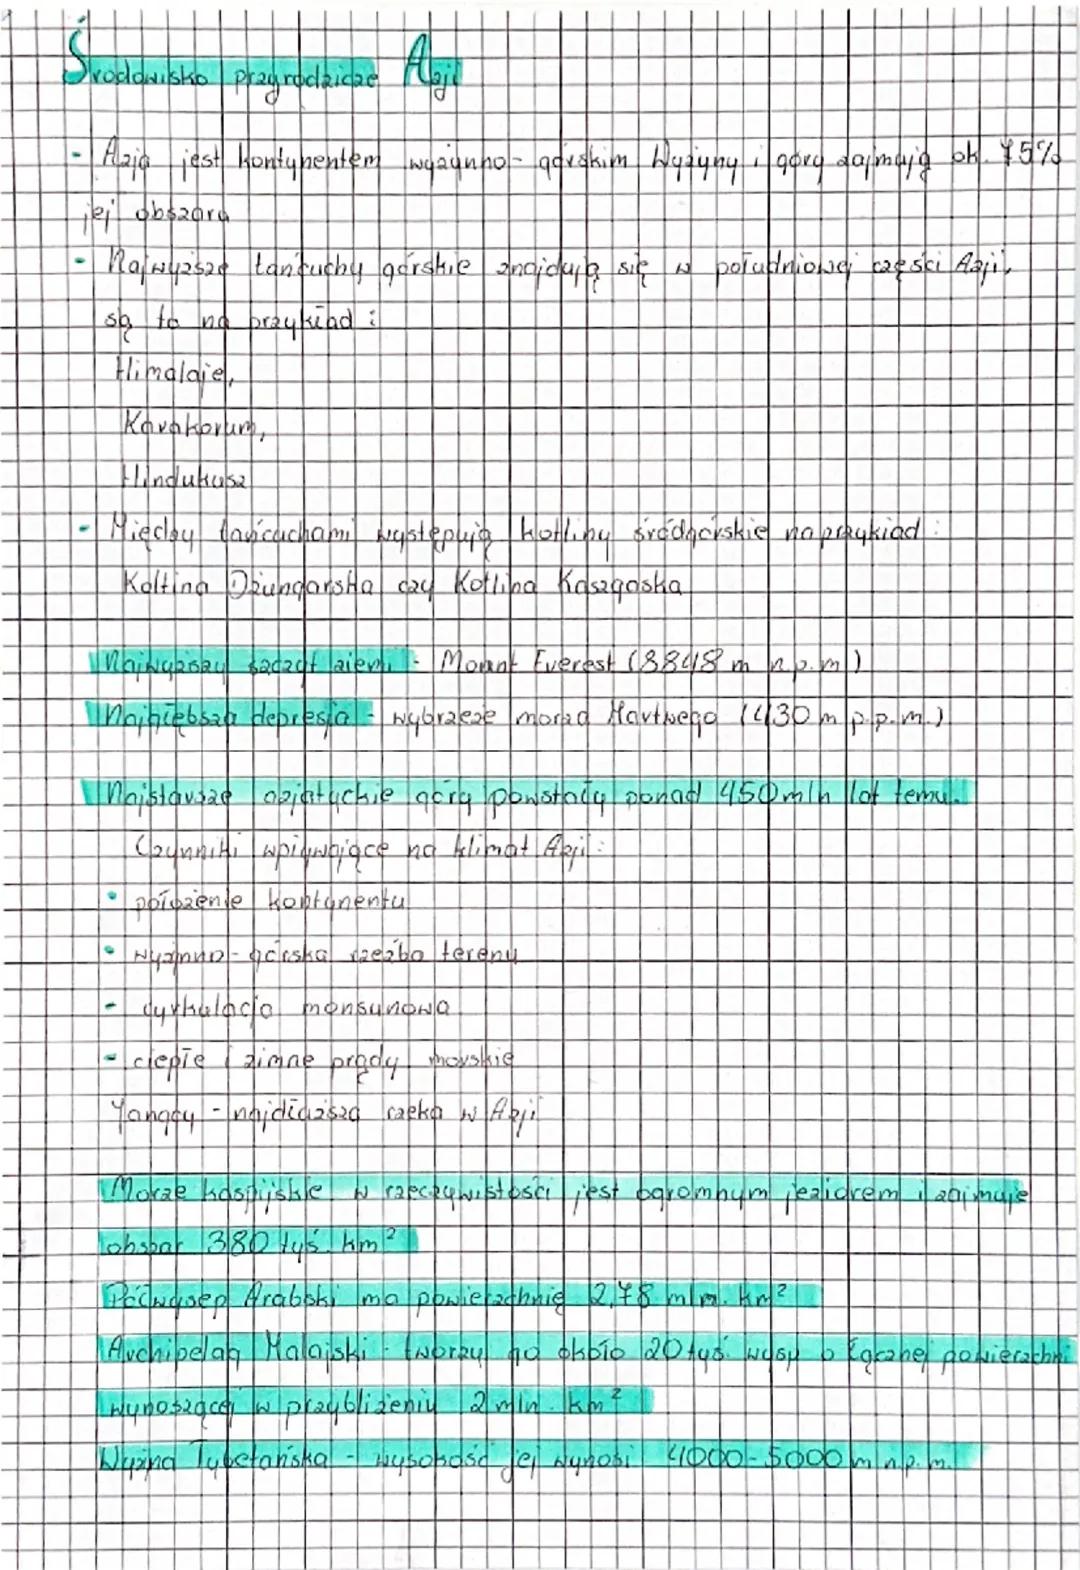 Środowisko przyrodzicze Azji
- Azja jest kontynentem wyżynno-górskim Wyżyny i góry zajmują ok. 75%
jej obszaru
- Najwyższe łańcuchy górskie znajdują się w południowej części Azji,
są to na przykład :
Himalaje,
Karakorum,
Hindukusz
- Między łańcuchami występują kotliny śródgórskie na przykład :
Koltina Dżungarska czy Kotlina Kaszgaska
Najwyższy szczyt ziemi - Mount Everest (8848 m n.p.m)
Najgłębsza depresja - wybrzeże morza Martwego (430 m p.p.m.)
Najstarsze azjatyckie góry powstały ponad 450 mln lat temu.
Czynniki wpływające na klimat Azji :
• położenie kontynentu
• wyżynno-górska rzeźba terenu
- cyrkulacja monsunowa
- ciepłe i zimne prądy morskie
Yangcy - najdłuższa rzeka w Azji
Morze kaspijskie w rzeczywistości jest ogromnym jeziorem i zajmuje
obszar 380 tyś. km²
Półwysep Arabski ma powierzchnię 2,78 mln. km²
Archipelag Malajski tworzy go około 20 tyś. wysp o łącznej powierzchni
wynoszącej w przybliżeniu 2 mln. km²
Wyżna Tybetańska - wysokość jej wynosi 4000-5000 m n.p.m.